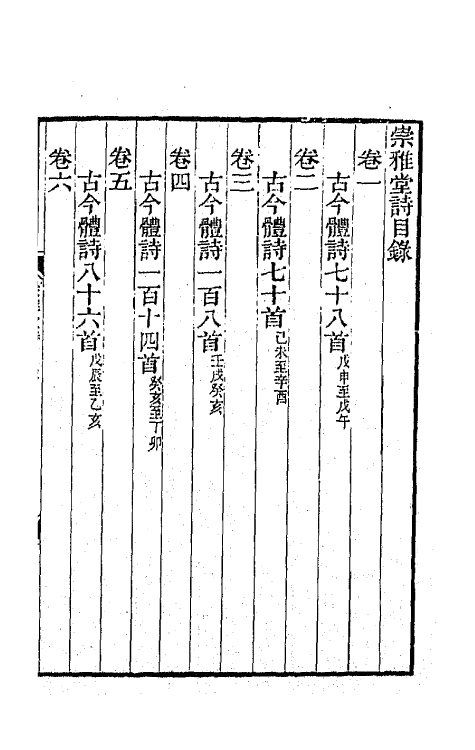 崇雅堂詩目錄
卷一
古今體詩七十八首戊申至戊午
卷二
古今體詩七十首己未至辛酉
卷三
古今體詩一百八首壬戌癸亥
卷四
古今體詩一百十四首癸亥至丁卯
卷五
古今體詩八十六首戊辰至乙亥
卷六